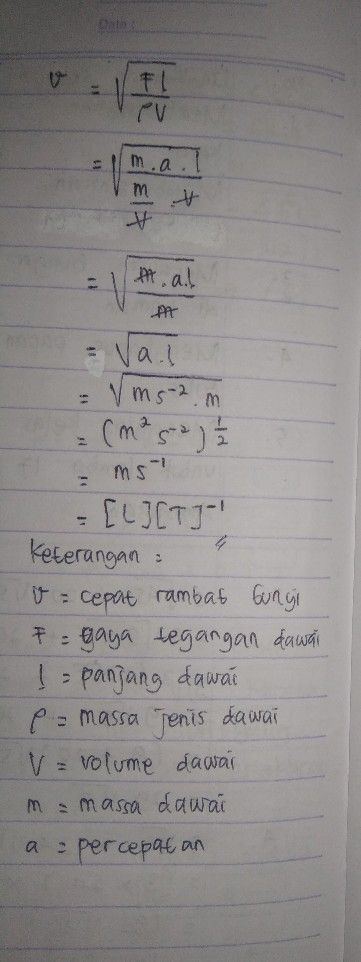 Date :
v = √(F l / ρV)
= √(m . a . l / (m/V . V))
= √(m . a . l / m)
= √a . l
= √ms⁻² . m
= (m² s⁻²)^½
= ms⁻¹
= [L][T]⁻¹
Keterangan :
v = cepat rambat bunyi
F = gaya tegangan dawai
l = panjang dawai
ρ = massa jenis dawai
V = volume dawai
m = massa dawai
a = percepatan